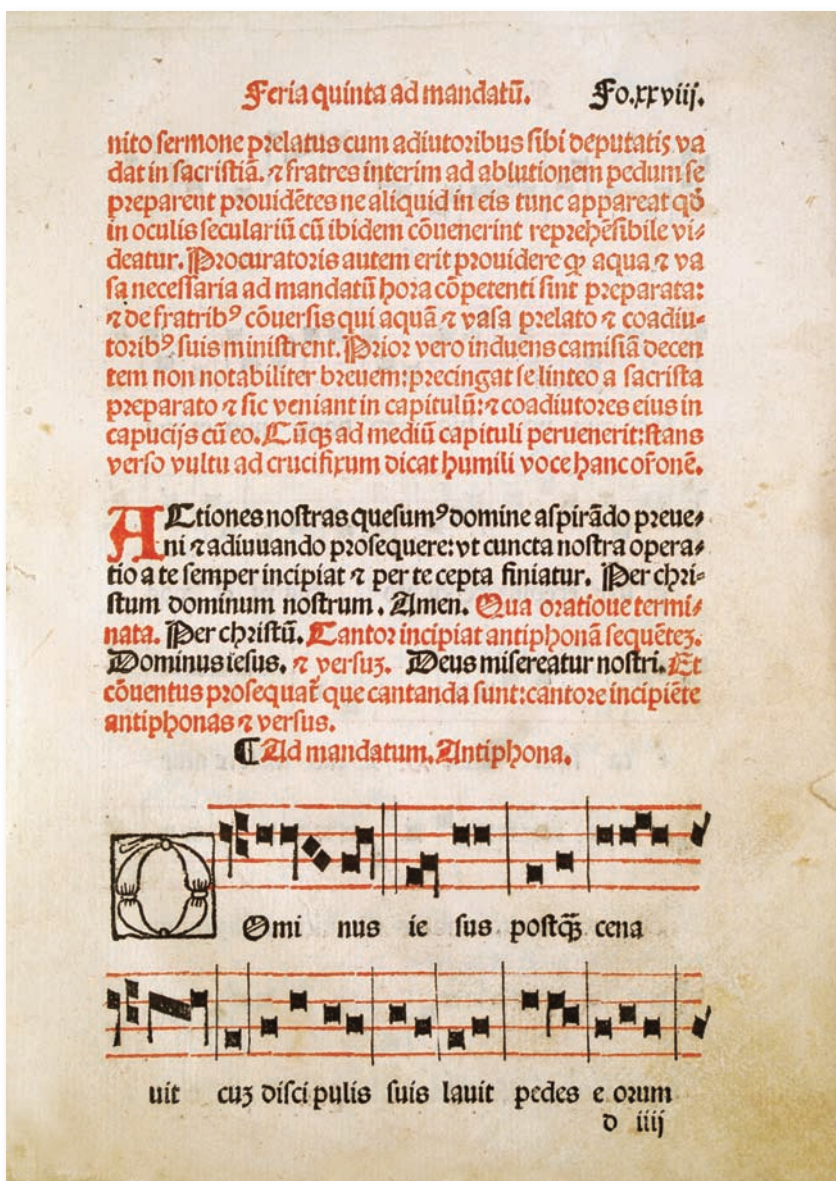 Feria quinta ad mandatū. Fo.xxviij.
nito sermone prelatus cum adiutoribus sibi deputatis va
dat in sacristiā. ⁊ fratres interim ad ablutionem pedum se
preparent prouidētes ne aliquid in eis tunc appareat qō
in oculis seculariū cū ibidem cōuenerint reprehēsibile vi⸗
deatur. Procuratoris autem erit prouidere ꝙ aqua ⁊ va
sa necessaria ad mandatū hora cōpetenti sint preparata:
⁊ de fratribꝰ cōuersis qui aquā ⁊ vasa prelato ⁊ coadiu⸗
toribꝰ suis ministrent. Prior vero induens camisiā decen
tem non notabiliter breuem: precingat se linteo a sacrista
preparato ⁊ sic veniant in capitulū: ⁊ coadiutores eius in
capucijs cū eo. Cūqꝫ ad mediū capituli peruenerit: stans
verso vultu ad crucifixum dicat humili voce hanc orōnē.
ACtiones nostras quesumꝰ domine aspirādo preue⸗
ni ⁊ adiuuando prosequere: vt cuncta nostra opera⸗
tio a te semper incipiat ⁊ per te cepta finiatur. Per chri⸗
stum dominum nostrum. Amen. Qua oratioue termi⸗
nata. Per christū. Cantor incipiat antiphonā sequēteꝫ.
Dominus iesus. ⁊ versuꝫ. Deus misereatur nostri. Et
cōuentus prosequat̄ que cantanda sunt: cantore incipiēte
antiphonas ⁊ versus.
⸿ Ad mandatum. Antiphona.
D Omi nus ie sus postqꝫ̄ cena
uit cuꝫ disci pulis suis lauit pedes e orum
d iiij